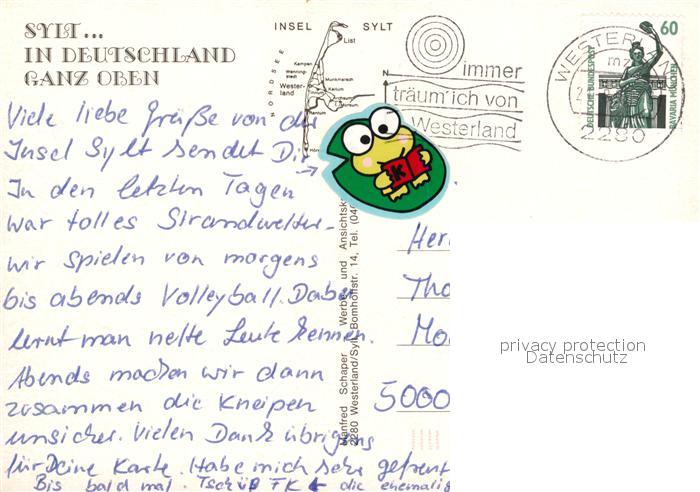 SYLT...
IN DEUTSCHLAND
GANZ OBEN
INSEL SYLT
NORDSEE
List
Kampen
Wenning-
stedt
Wester-
land
Munkmarsch
Keitum
Rantum
N
immer
träum' ich von
Westerland
WESTERLAND
mz
2280
60
DEUTSCHE BUNDESPOST
BAVARIA MÜNCHEN
Viele liebe Grüße von der
Insel Sylt sendet Dir
In den letzten Tagen
war tolles Strandwetter-
wir spielen von morgens
bis abends Volleyball. Dabei
lernt man nette Leute kennen.
Abends machen wir dann
zusammen die Kneipen
unsicher. Vielen Dank übrigens
für Deine Karte. Habe mich sehr gefreut
Bis bald mal. Tschüß die
K
Manfred Schaper Werbe- und Ansichtsk
2280 Westerland/Sylt, Bomhoffstr. 14, Tel. (04
Her
Tho
Mo
5000
privacy protection
Datenschutz